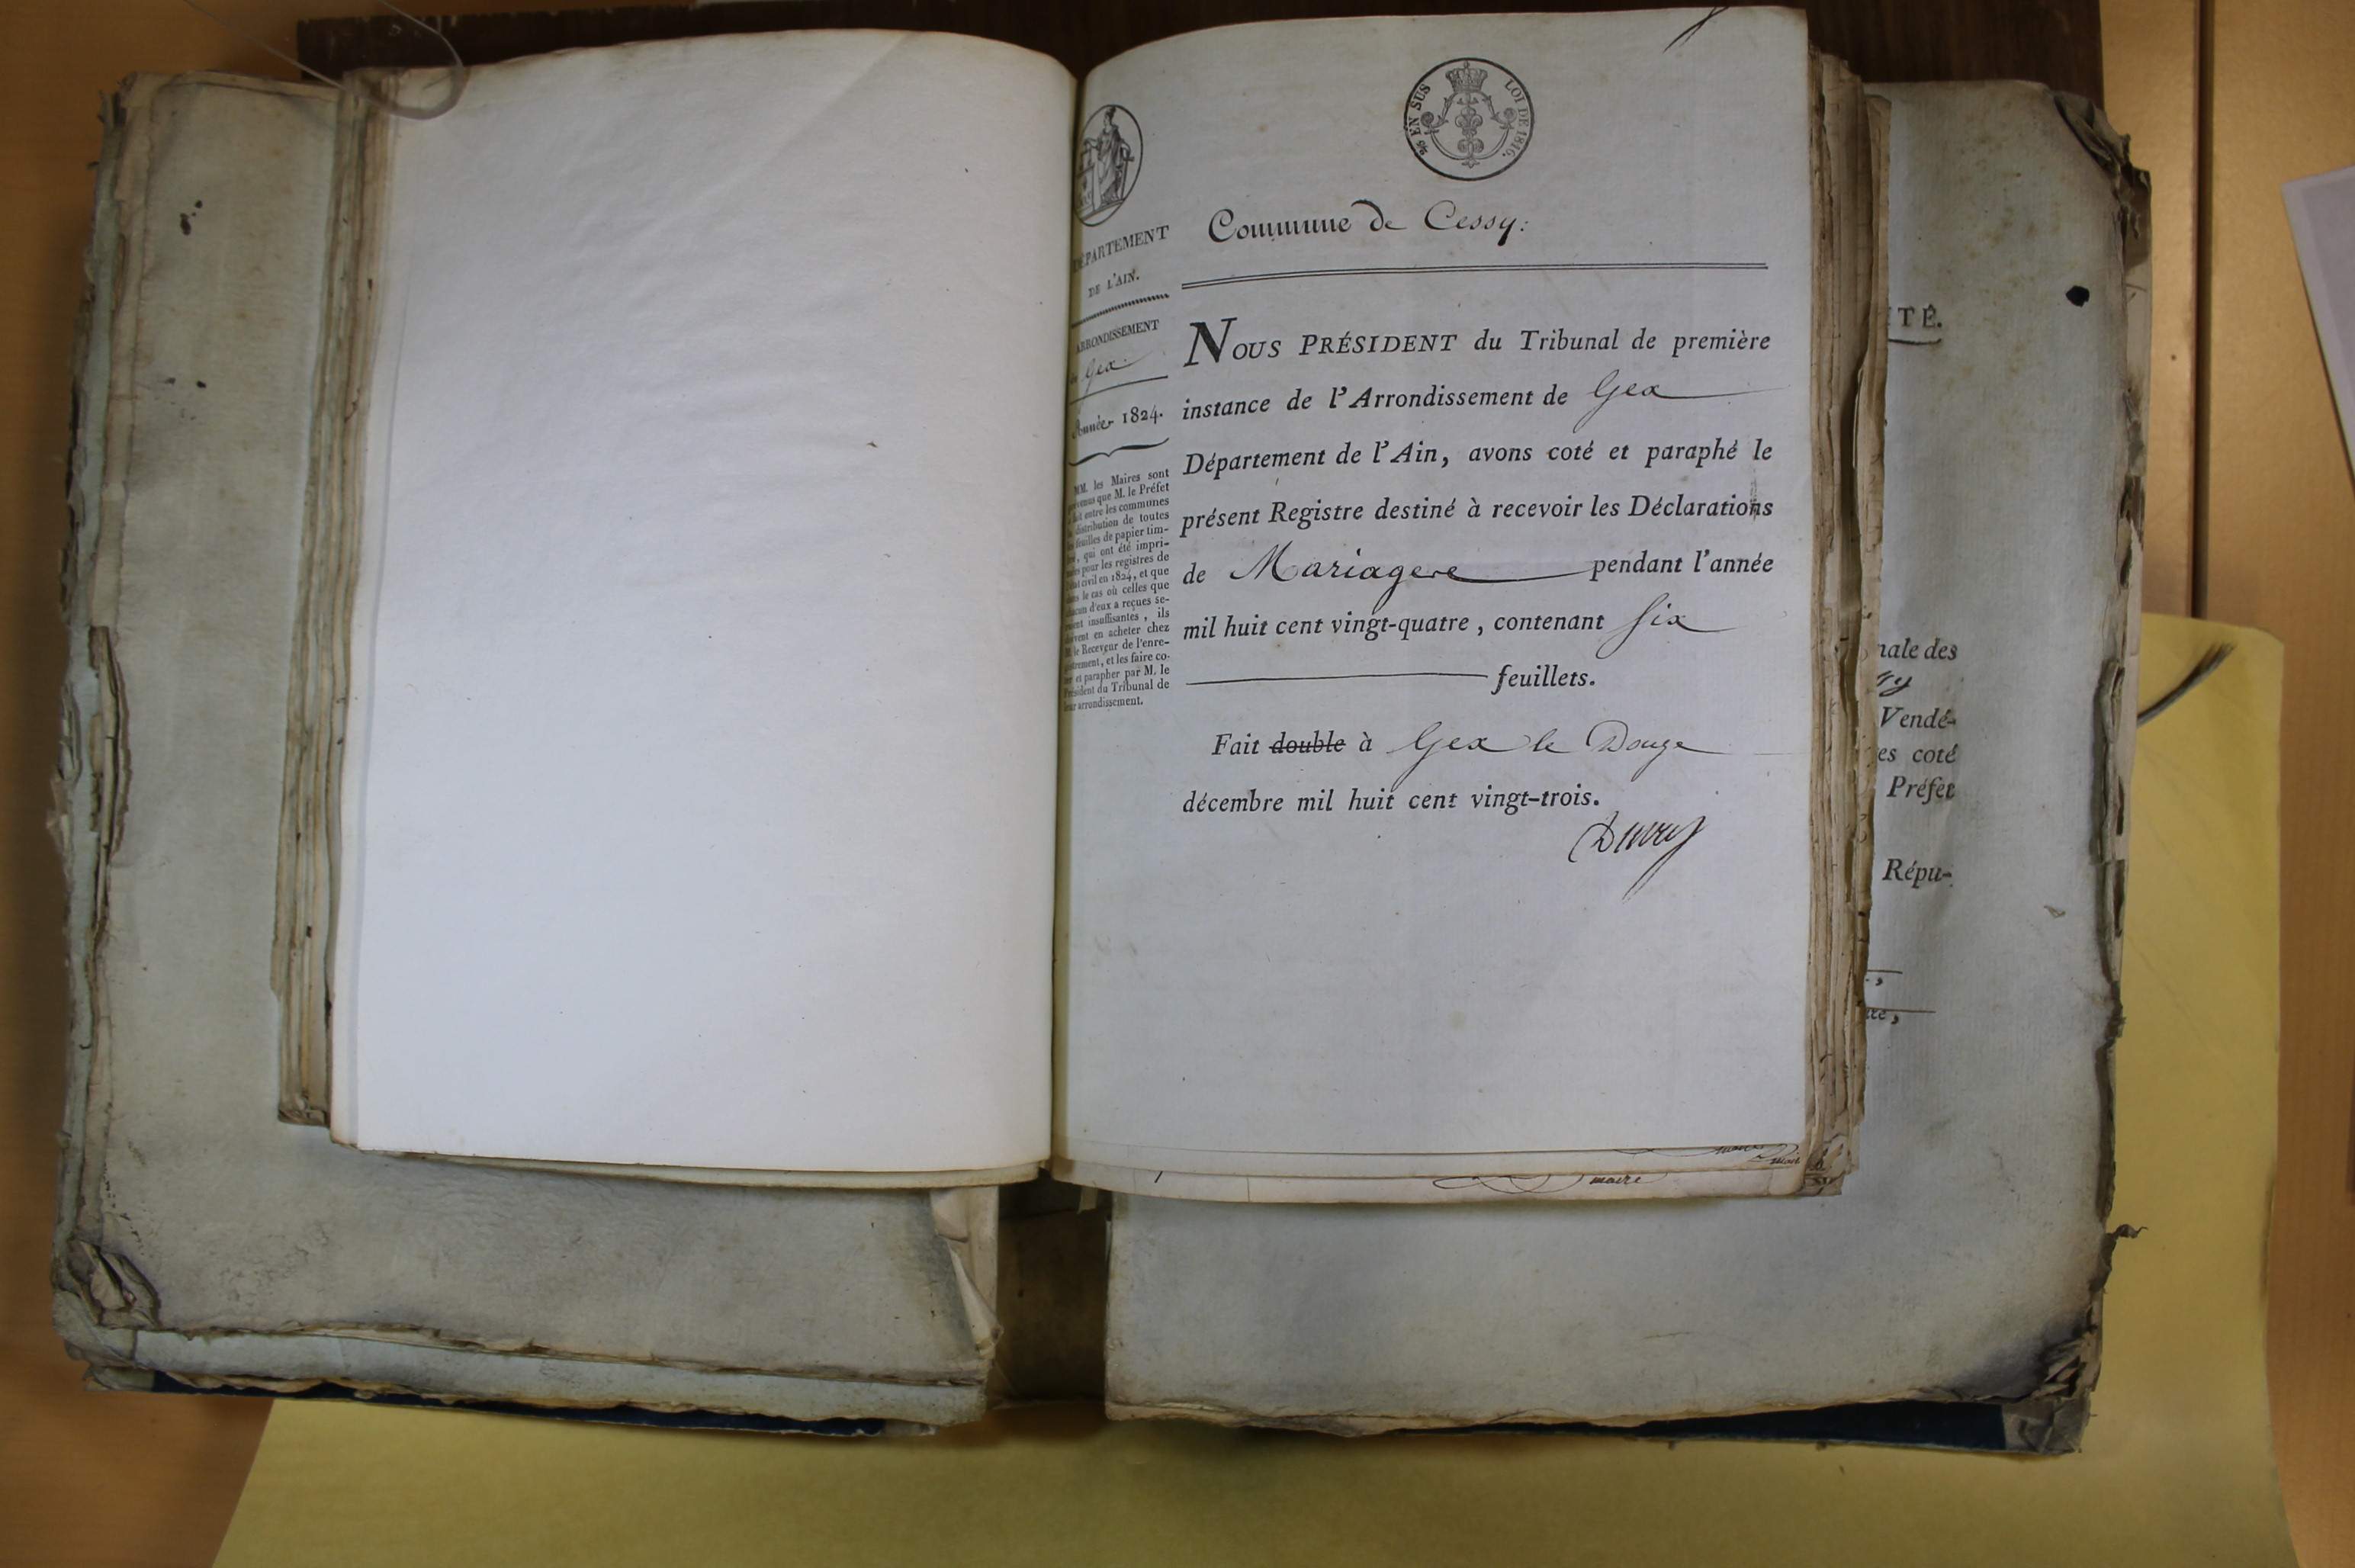 EN SUS LOI DE 1816.
Commune de Cessy.
DÉPARTEMENT
DE L'AIN.
ARRONDISSEMENT
Gex
Année 1824.
MM. les Maires sont
que M. le Préfet
entre les communes
distribution de toutes
feuilles de papier tim-
qui ont été impri-
pour les registres de
civil en 1824, et que
le cas où celles que
d'eux a reçues se-
insuffisantes, ils
en acheter chez
le Receveur de l'enre-
et les faire co-
et parapher par M. le
Président du Tribunal de
arrondissement.
NOUS PRÉSIDENT du Tribunal de première
instance de l'Arrondissement de Gex
Département de l'Ain, avons coté et paraphé le
présent Registre destiné à recevoir les Déclarations
de Mariages pendant l'année
mil huit cent vingt-quatre, contenant Six
feuillets.
Fait double à Gex le Douze
décembre mil huit cent vingt-trois.
maire
TÉ.
nale des
Vendé-
es coté
Préfet
Répu-